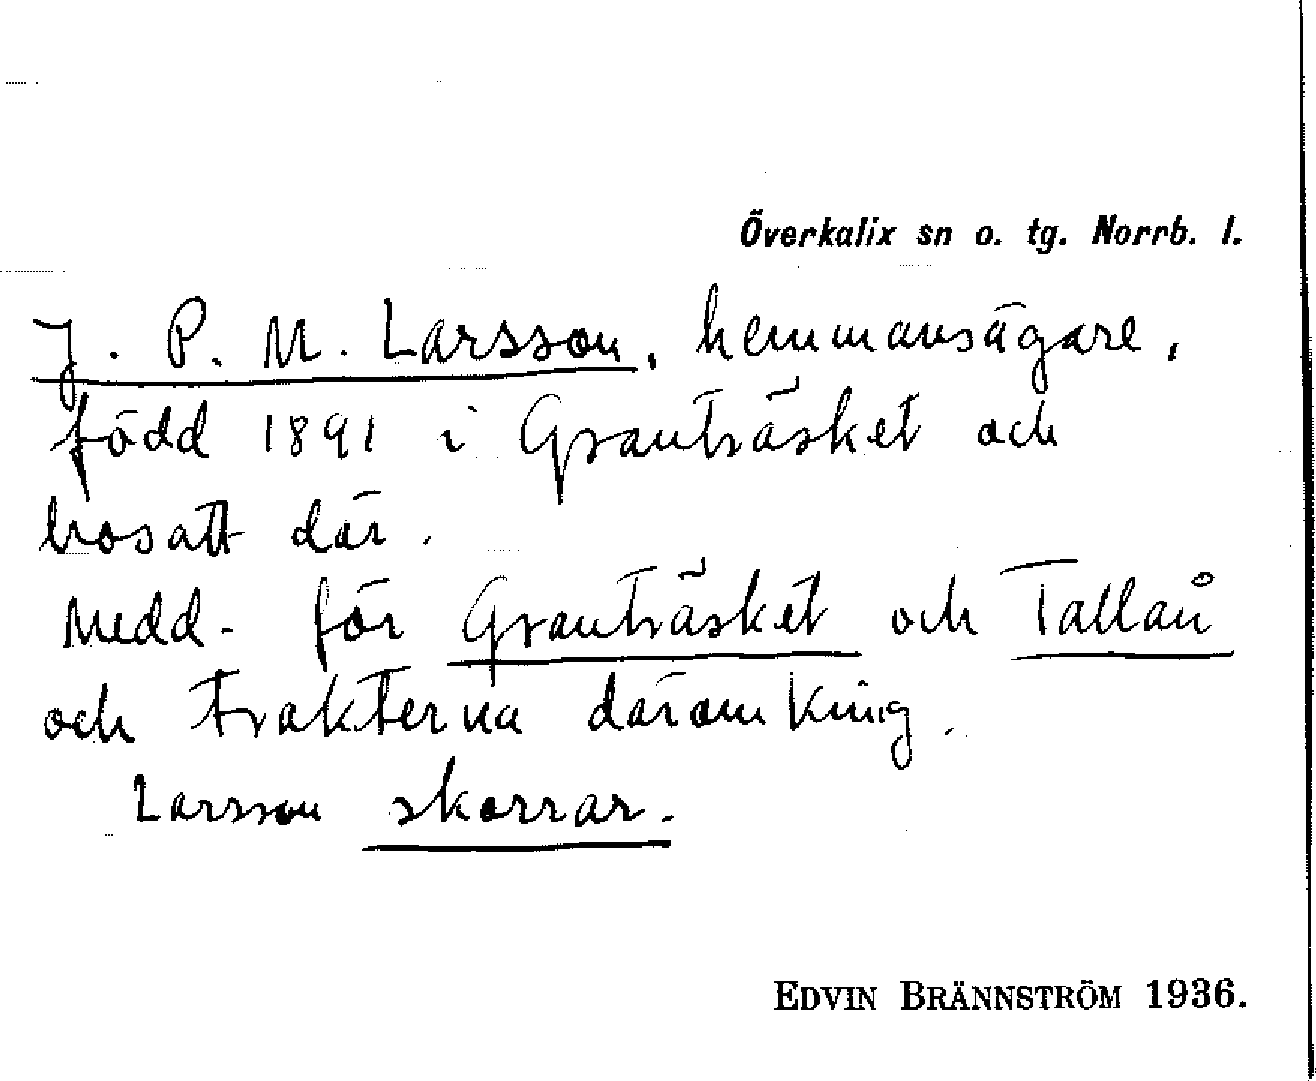 Överkalix sn o. tg. Norrb. l.
J. P. M. Larsson, hemmansägare,
född 1891 i Granträsket och
bosatt där.
Medd. för Granträsket och Tallån
och trakterna däromkring.
Larsson skorrar.
EDVIN BRÄNNSTRÖM 1936.